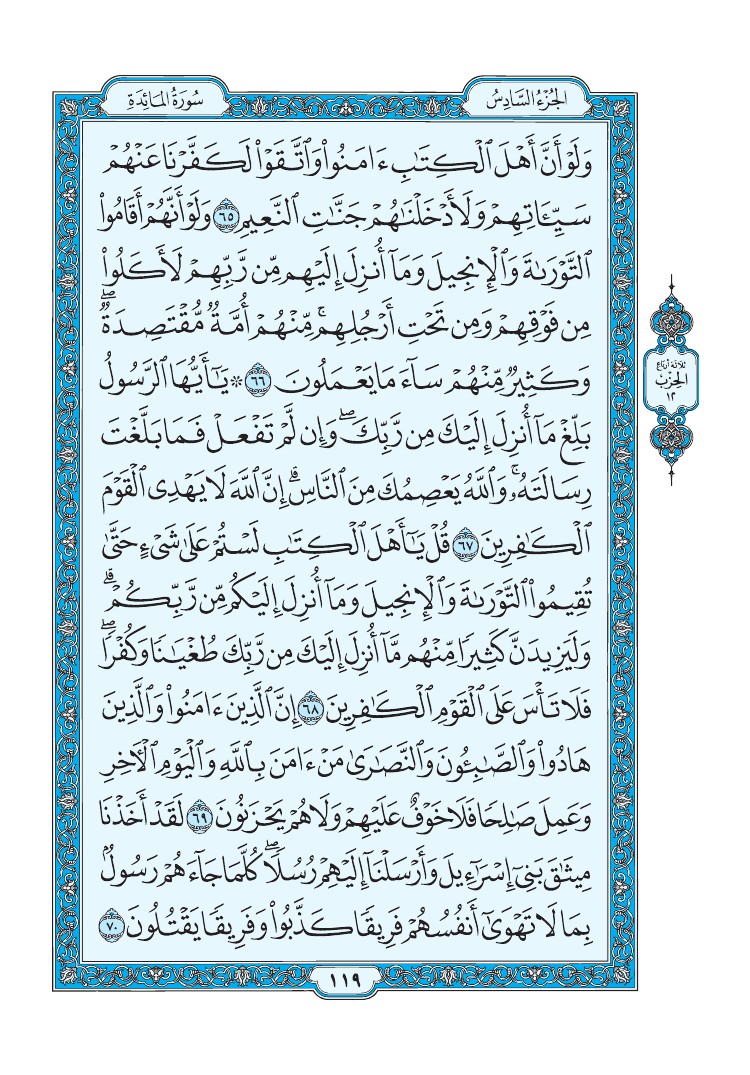 سُورَةُ المَائِدَةِ
الجُزْءُ السَّادِسُ
وَلَوْ أَنَّ أَهْلَ ٱلْكِتَٰبِ ءَامَنُوا۟ وَٱتَّقَوْا۟ لَكَفَّرْنَا عَنْهُمْ
سَيِّـَٔاتِهِمْ وَلَأَدْخَلْنَٰهُمْ جَنَّٰتِ ٱلنَّعِيمِ ٦٥ وَلَوْ أَنَّهُمْ أَقَامُوا۟
ٱلتَّوْرَىٰةَ وَٱلْإِنجِيلَ وَمَآ أُنزِلَ إِلَيْهِم مِّن رَّبِّهِمْ لَأَكَلُوا۟
مِن فَوْقِهِمْ وَمِن تَحْتِ أَرْجُلِهِم ۚ مِّنْهُمْ أُمَّةٌ مُّقْتَصِدَةٌ ۖ
وَكَثِيرٌ مِّنْهُمْ سَآءَ مَا يَعْمَلُونَ ٦٦ ۞ يَٰٓأَيُّهَا ٱلرَّسُولُ
بَلِّغْ مَآ أُنزِلَ إِلَيْكَ مِن رَّبِّكَ ۖ وَإِن لَّمْ تَفْعَلْ فَمَا بَلَّغْتَ
رِسَالَتَهُۥ ۚ وَٱللَّهُ يَعْصِمُكَ مِنَ ٱلنَّاسِ ۗ إِنَّ ٱللَّهَ لَا يَهْدِى ٱلْقَوْمَ
ٱلْكَٰفِرِينَ ٦٧ قُلْ يَٰٓأَهْلَ ٱلْكِتَٰبِ لَسْتُمْ عَلَىٰ شَىْءٍ حَتَّىٰ
تُقِيمُوا۟ ٱلتَّوْرَىٰةَ وَٱلْإِنجِيلَ وَمَآ أُنزِلَ إِلَيْكُم مِّن رَّبِّكُمْ ۗ
وَلَيَزِيدَنَّ كَثِيرًا مِّنْهُم مَّآ أُنزِلَ إِلَيْكَ مِن رَّبِّكَ طُغْيَٰنًا وَكُفْرًا ۖ
فَلَا تَأْسَ عَلَى ٱلْقَوْمِ ٱلْكَٰفِرِينَ ٦٨ إِنَّ ٱلَّذِينَ ءَامَنُوا۟ وَٱلَّذِينَ
هَادُوا۟ وَٱلصَّٰبِـُٔونَ وَٱلنَّصَٰرَىٰ مَنْ ءَامَنَ بِٱللَّهِ وَٱلْيَوْمِ ٱلْءَاخِرِ
وَعَمِلَ صَٰلِحًا فَلَا خَوْفٌ عَلَيْهِمْ وَلَا هُمْ يَحْزَنُونَ ٦٩ لَقَدْ أَخَذْنَا
مِيثَٰقَ بَنِىٓ إِسْرَٰٓءِيلَ وَأَرْسَلْنَآ إِلَيْهِمْ رُسُلًا ۖ كُلَّمَا جَآءَهُمْ رَسُولٌۢ
بِمَا لَا تَهْوَىٰٓ أَنفُسُهُمْ فَرِيقًا كَذَّبُوا۟ وَفَرِيقًا يَقْتُلُونَ ٧٠
ثلاثة أرباع
الحِزْبُ
١٢
١١٩